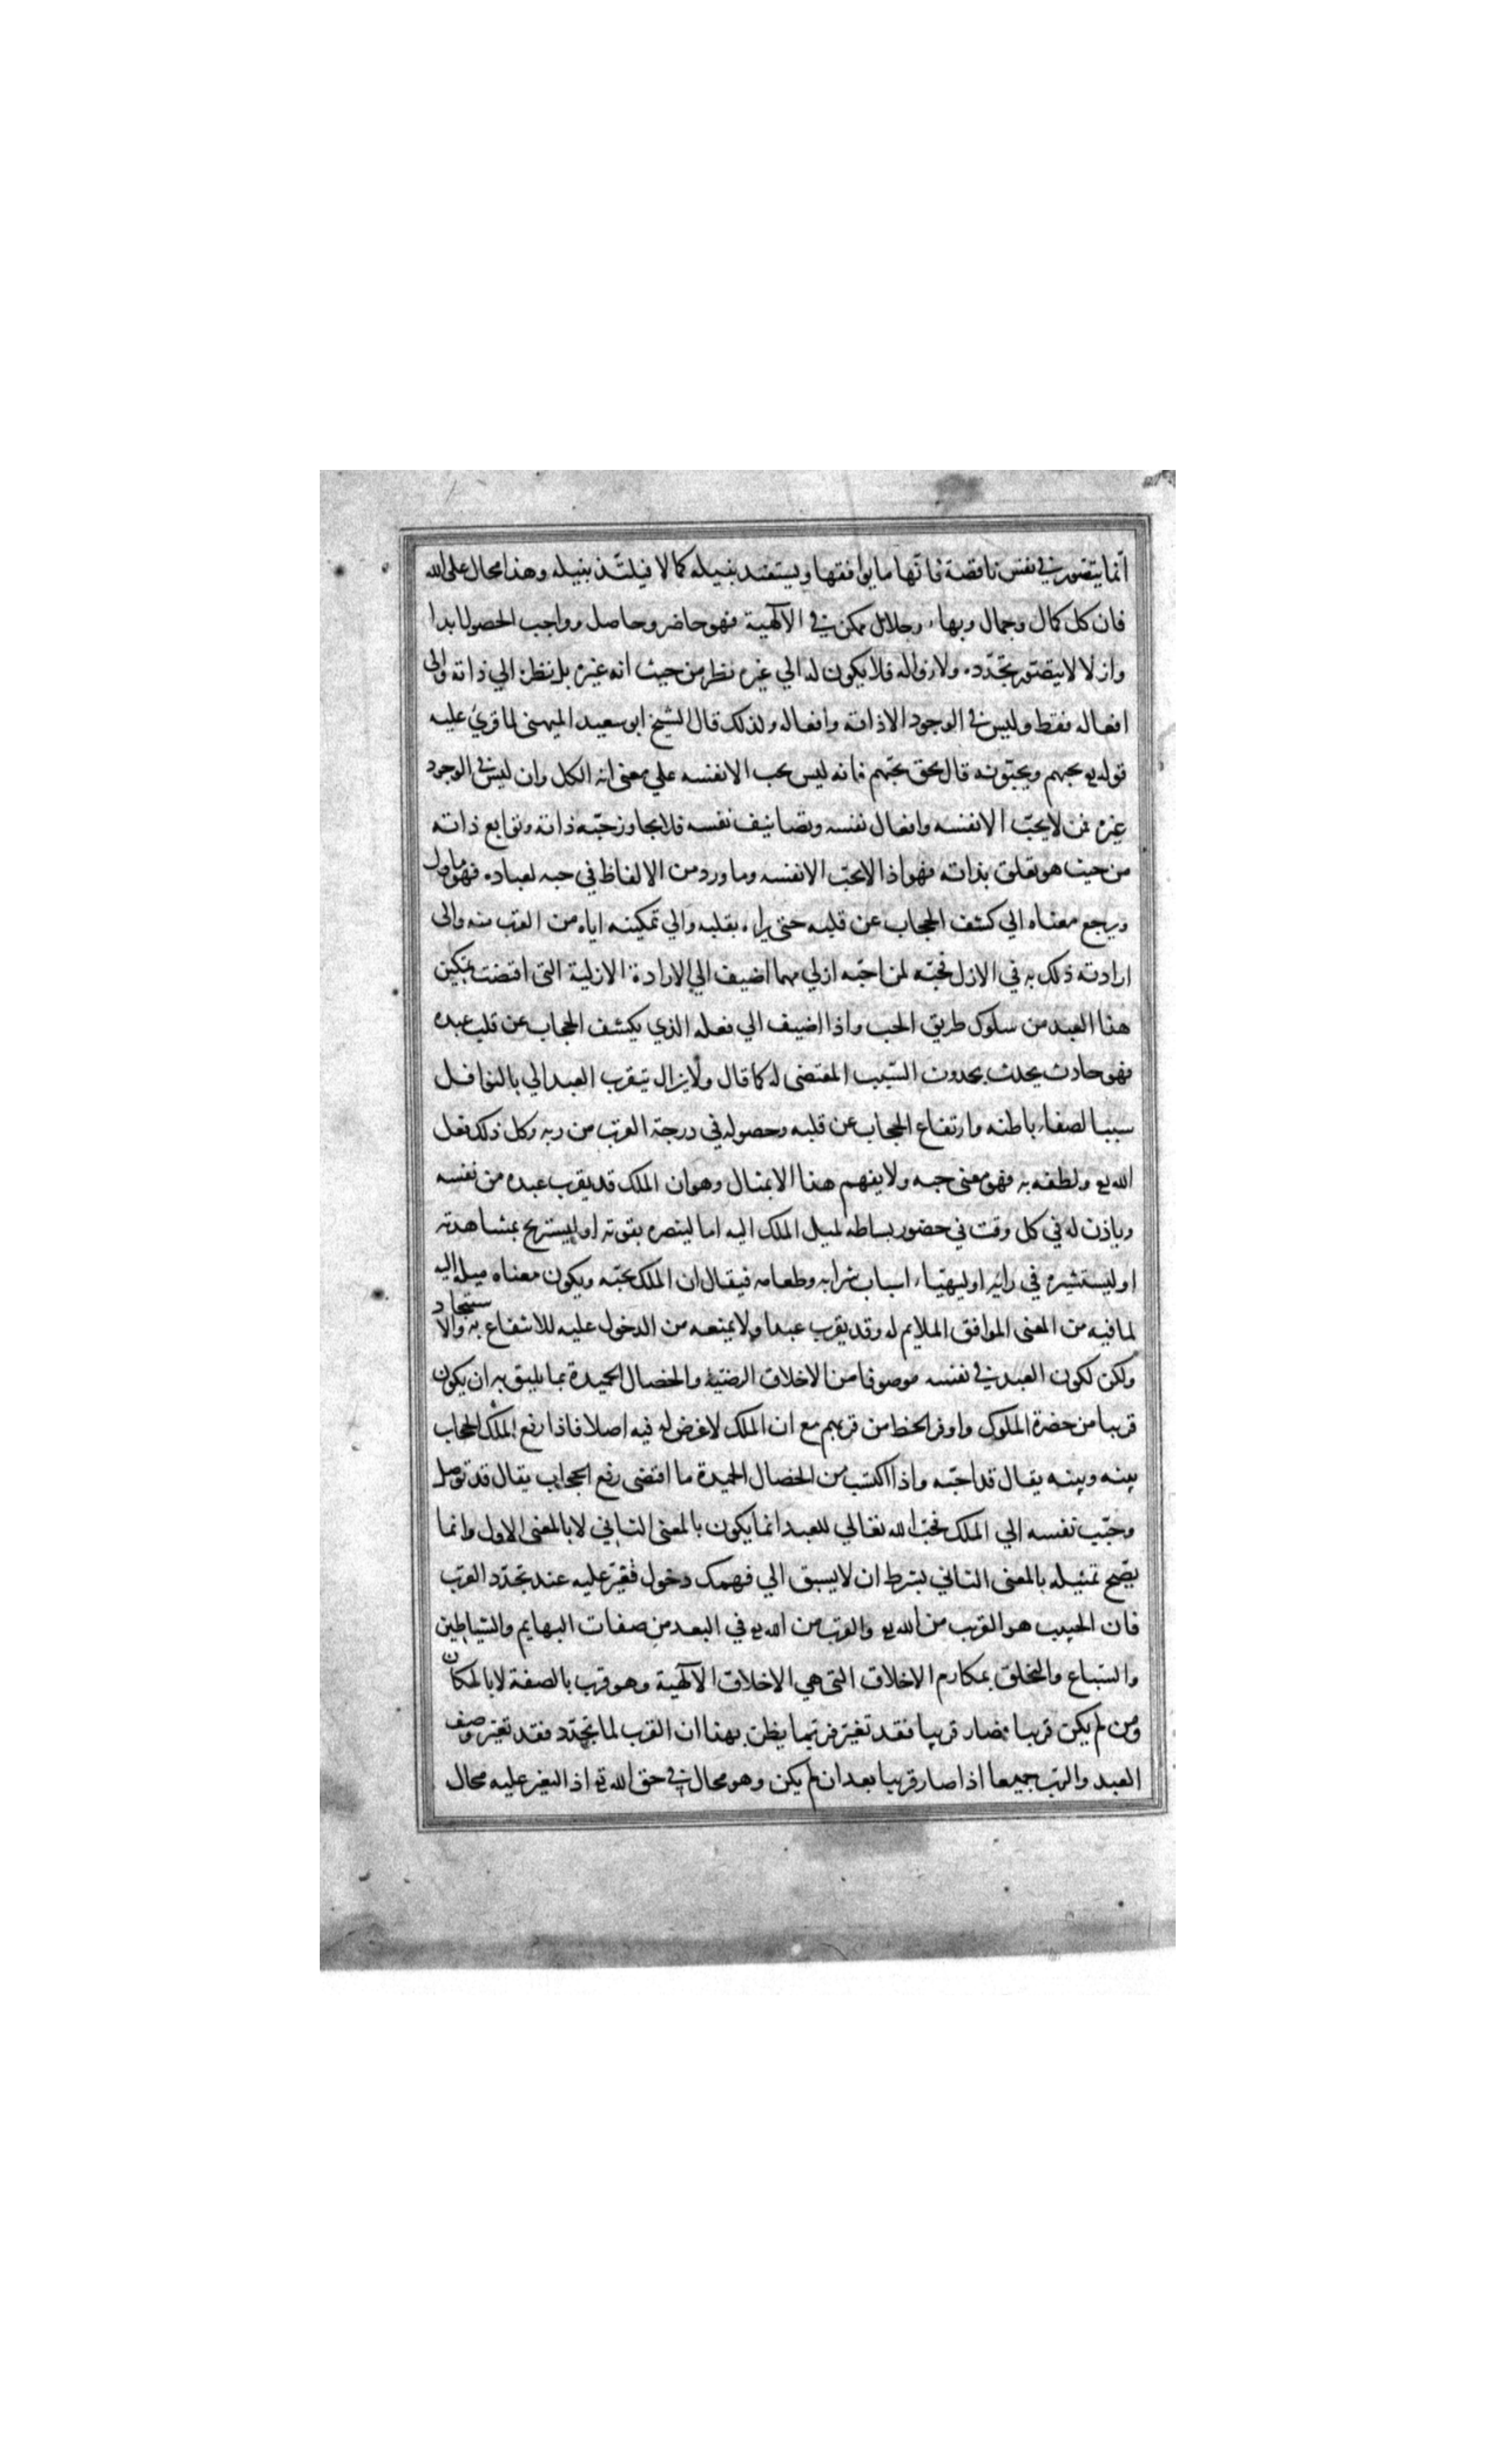 انما يتصور في نفس ناقصة فاتها ما يوافقها ويستفيد بنيله كمالا فيلتذ بنيله وهذا محال على الله
فان كل كمال وجمال وبهاء وجلال ممكن في الآلهية فهو حاضر وحاصل وواجب الحصول ابدا
وازلا لا يتصور تجدده ولا زواله فلا يكون له الي غيره نظر من حيث انه غيره بل نظره الي ذاته والى
افعاله فقط وليس في الوجود الا ذاته وافعاله ولذلك قال الشيخ ابو سعيد الميهني لما قريء عليه
قوله يع يحبهم ويحبونه قال بحق يحبهم فانه ليس يحب الا نفسه علي معنى انه الكل وان ليس في الوجود
غيره فمن لا يحبّ الا نفسه وافعال نفسه وتصانيف نفسه فلا يجاوز حبّه ذاته وتوابع ذاته
من حيث هو تعلق بذاته فهو اذا لا يحبّ الا نفسه وما ورد من الالفاظ في حبه لعباده فهو ماول
ويرجع معناه الي كشف الحجاب عن قلبه حتى يراه بقلبه والي تمكينه اياه من القرب منه والى
ارادته ذلك به في الازل فحبّه لمن احبّه ازلي مهما اضيف الي الارادة الازلية التى اقتضت تمكين
هذا العبد من سلوك طريق الحب واذا اضيف الي فعله الذي يكشف الحجاب عن قلب عبده
فهو حادث يحدث بحدوث السّبب المقتضى له كما قال ولا يزال يتقرب العبد الي بالنوافل
سببا لصفاء باطنه وارتفاع الحجاب عن قلبه وحصوله في درجة القرب من ربه وكل ذلك فعل
الله يع ولطفه به فهو معنى حبه ولا يفهم هذا الا بمثال وهو ان الملك قد يقرب عبده من نفسه
وياذن له في كل وقت في حضور بساطه لميل الملك اليه اما لينصره بقوته او ليستريح بمشاهدته
او ليستشيره في رائيه او ليهيّاء اسباب شرابه وطعامه فيقال ان الملك يحبّه ويكون معناه ميله اليه
لما فيه من المعنى الموافق الملايم له وقد يقرب عبدا ولا يمنعه من الدخول عليه للانتفاع به والاستنجاد
ولكن لكون العبد في نفسه موصوفا من الاخلاق الرضية والخصال الحميدة بما يليق به ان يكون
قريبا من حضرة الملوك وافر الحظ من قربهم مع ان الملك لا غرض له فيه اصلا فاذا رفع الملك الحجاب
بينه وبينه يقال قد احبّه واذا اكتسب من الخصال الحميدة ما اقتضى رفع الحجاب يقال قد توصل
وحبّب نفسه الي الملك فحبّ الله تعالي للعبد انما يكون بالمعنى الثاني لا بالمعنى الاول وانما
يصّح تمثيله بالمعنى الثاني بشرط ان لا يسبق الي فهمك دخول تغيّر عليه عند تجدّد القرب
فان الحبيب هو القريب من الله يع والقرب من الله يع في البعد من صفات البهايم والشياطين
والسّباع والتخلق بمكارم الاخلاق التى هي الاخلاق الآلهية وهو قرب بالصفة لا بالمكان
ومن لم يكن قريبا فصار قريبا فقد تغيّر فربّما يظن بهذا ان القرب لما تجدّد فقد تغيّر وصف
العبد والربّ جميعا اذا صار قريبا بعد ان لم يكن وهو محال في حق الله يع اذ التغير عليه محال